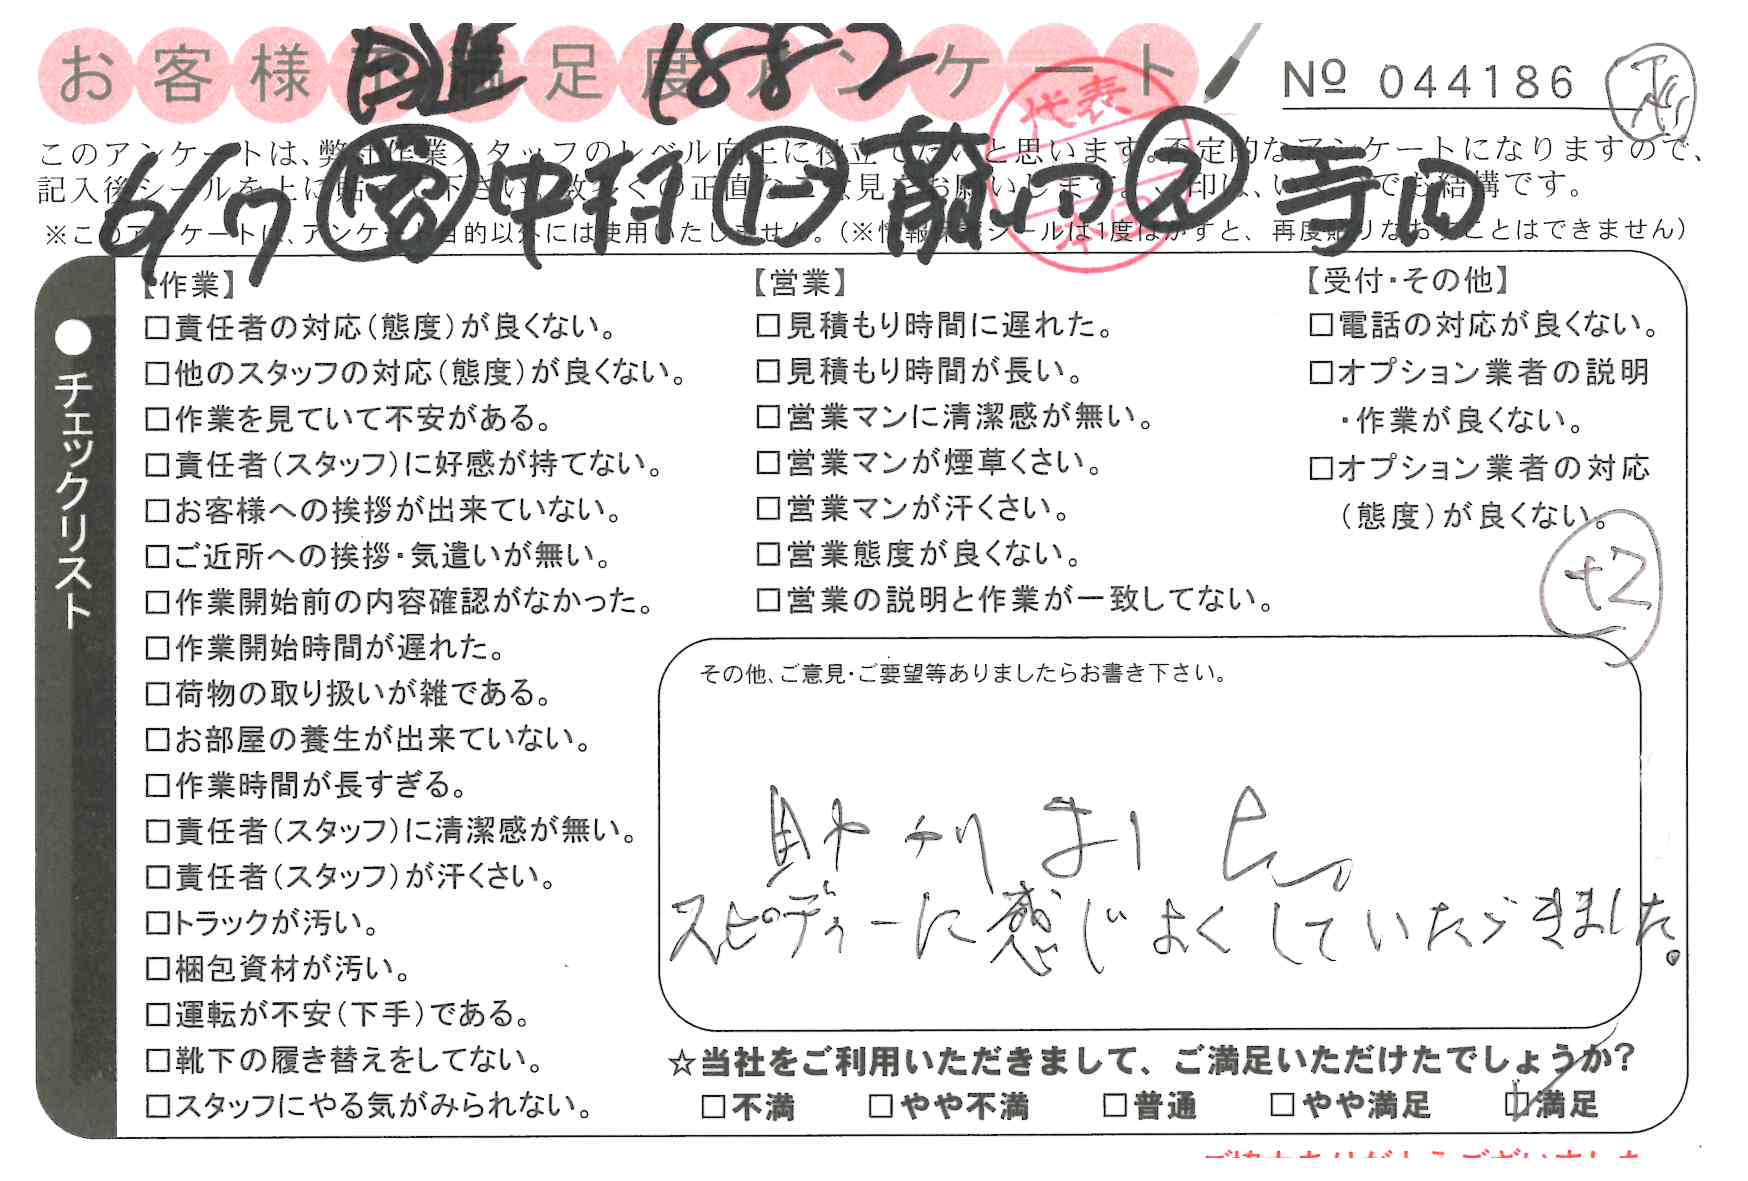 お客様不満足度アンケート
1882
Nº 044186
このアンケートは、弊社作業スタッフのレベル向上に役立てたいと思います。否定的なアンケートになりますので、
記入後シールを上に貼って下さい。数多くの正直なご意見をお願いします。✓印は、いくつでも結構です。
※このアンケートは、アンケート目的以外には使用いたしません。(※情報保護シールは1度はがすと、再度貼りなおすことはできません)
代表
本田
6/7 営 中村 ト 前山 2 寺内
●チェックリスト
【作業】
□責任者の対応(態度)が良くない。
□他のスタッフの対応(態度)が良くない。
□作業を見ていて不安がある。
□責任者(スタッフ)に好感が持てない。
□お客様への挨拶が出来ていない。
□ご近所への挨拶・気遣いが無い。
□作業開始前の内容確認がなかった。
□作業開始時間が遅れた。
□荷物の取り扱いが雑である。
□お部屋の養生が出来ていない。
□作業時間が長すぎる。
□責任者(スタッフ)に清潔感が無い。
□責任者(スタッフ)が汗くさい。
□トラックが汚い。
□梱包資材が汚い。
□運転が不安(下手)である。
□靴下の履き替えをしてない。
□スタッフにやる気がみられない。
【営業】
□見積もり時間に遅れた。
□見積もり時間が長い。
□営業マンに清潔感が無い。
□営業マンが煙草くさい。
□営業マンが汗くさい。
□営業態度が良くない。
□営業の説明と作業が一致してない。
【受付・その他】
□電話の対応が良くない。
□オプション業者の説明
・作業が良くない。
□オプション業者の対応
(態度)が良くない。
+2
その他、ご意見・ご要望等ありましたらお書き下さい。
助かりました。
スピーディーに感じよくしていただきました。
☆当社をご利用いただきまして、ご満足いただけたでしょうか?
□不満 □やや不満 □普通 □やや満足 ☑満足
ご協力ありがとうございました